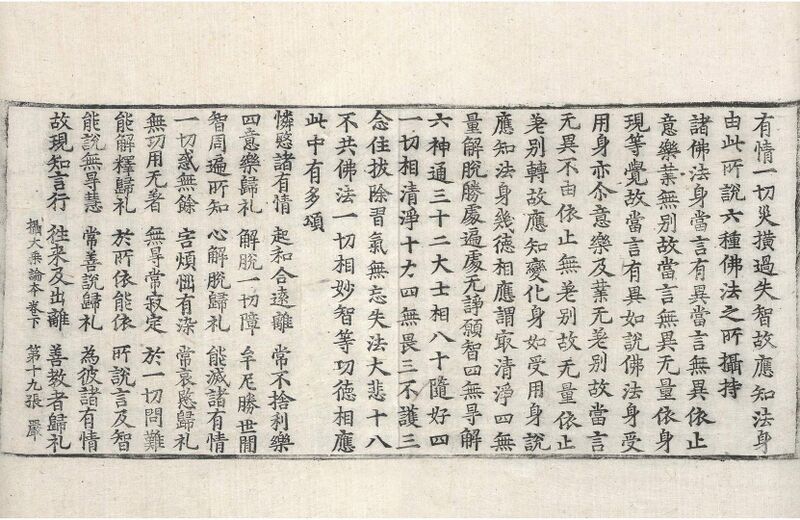 有情一切災横過失智故應知法身
由此所說六種佛法之所攝持
諸佛法身當言有異當言無異依止
意樂業無別故當言無異无量依身
現等覺故當言有異如說佛法身受
用身亦尒意樂及業无差别故當言
无異不由依止無差别故无量依止
差别轉故應知變化身如受用身說
應知法身幾德相應謂㝡清淨四無
量解脫勝處遍處无諍願智四無㝵解
六神通三十二大士相八十隨好四
一切相清淨十力四無畏三不護三
念住拔除習氣無忘失法大悲十八
不共佛法一切相妙智等功德相應
此中有多頌
憐愍諸有情 起和合遠離 常不捨利樂
四意樂歸礼 解脫一切障 牟尼勝世間
智周遍所知 心解脫歸礼 能滅諸有情
一切惑無餘 害煩惱有染 常哀愍歸礼
無功用无著 無㝵常寂定 於一切問難
能解釋歸礼 於所依能依 所說言及智
能說無㝵慧 常善說歸礼 為彼諸有情
故現知言行 往来及出離 善教者歸礼
攝大乘論本卷下 第十九張 嚴